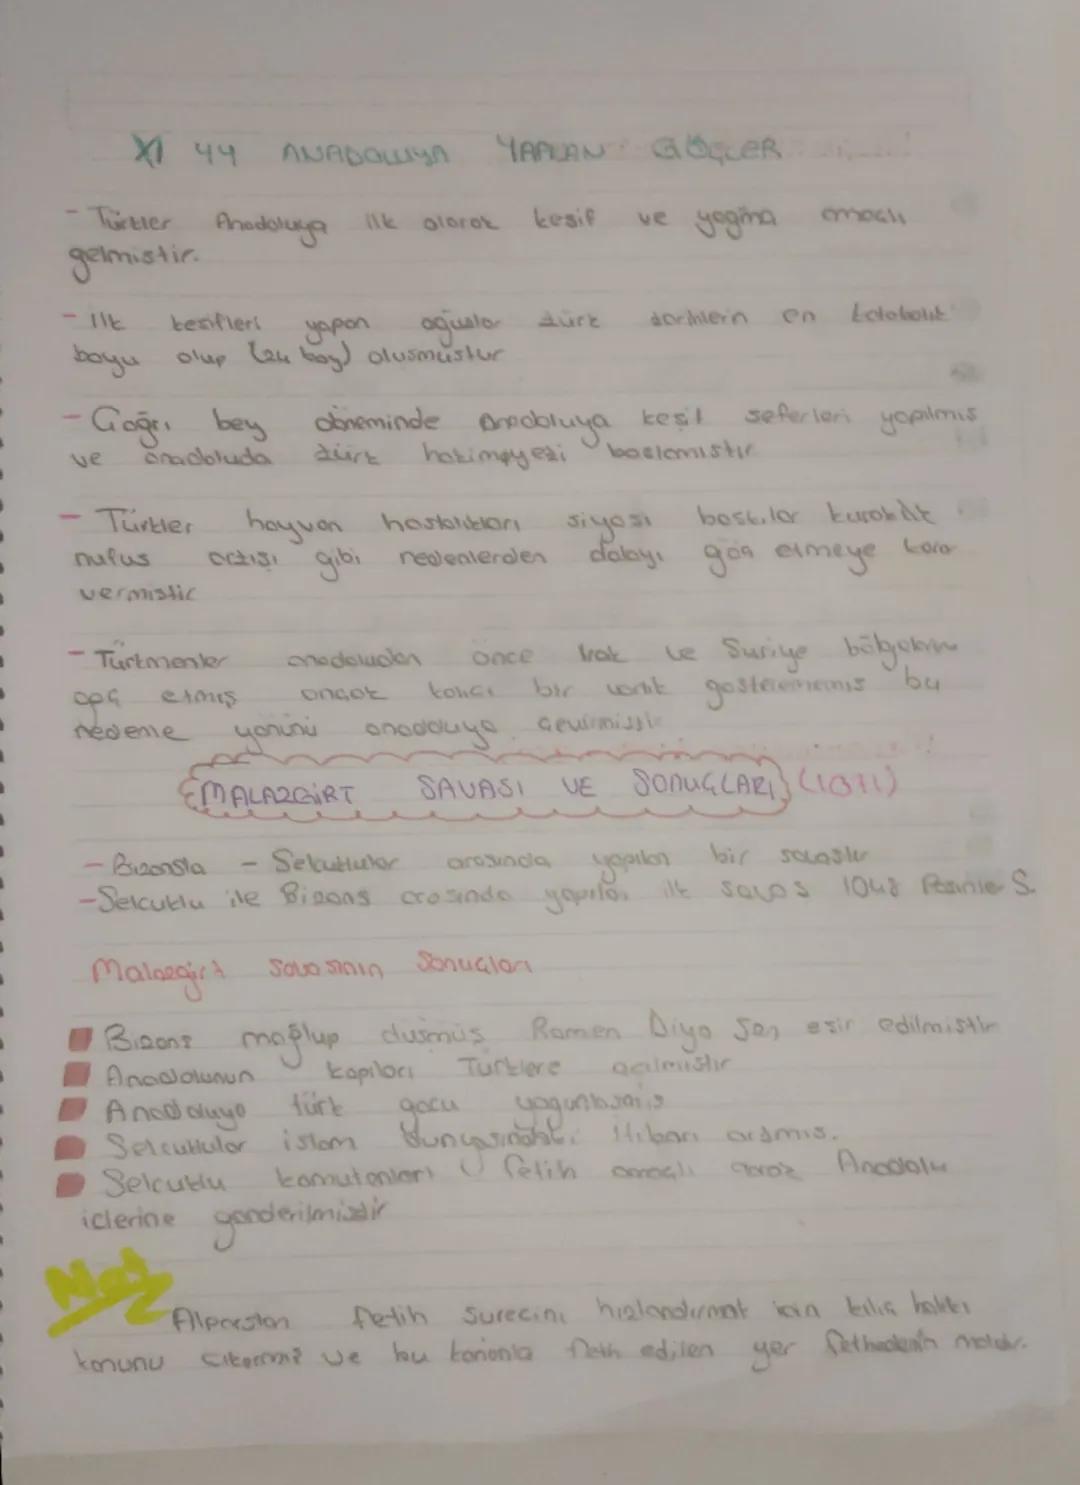 XI 44 ANADOLUYA YAPILAN GÖÇLER
- Türkler Anadoluya ilk olarak kesif ve yagma amaclı
gelmistir.
- İlk kesifleri yapan oğuslar türk tarihlerin en kalabalık
boyu olup (24 boy) olusmustur
- Çağrı bey döneminde Anadoluya keşif seferleri yapılmıs
ve anadoluda türk hakimeyezi baslamıstır
- Türkler hayvan hastalıkları siyası baskılar kuraklık
nufus artısı gibi nedenlerden dolayı göç etmeye karar
vermistir
- Türkmenler anadoludan önce Irak ve Suriye bölgelerine
göç etmiş ancak kalıcı bir varlık gosterememis bu
nedenle yönünü anadoluya cevirmistir
MALAZGİRT SAVASI VE SONUÇLARI (1071)
- Bizansla - Selcuklular arasında yapılan bir savastır
- Selcuklu ile Bizans arasında yapılan ilk savas 1048 Pasinler S.
Malazgirt savasının Sonucları
Bizans mağlup dusmüş Romen Diyojen esir edilmistir
Anadolunun kapıları Türklere acılmıstır
Anadoluya türk gocu yogunlasmıs
Selcuklular islam dunyasındaki itibarı artmıs.
Selcuklu komutanları fetih amaclı Anadolu
iclerine gonderilmistir
Not
Alparslan fetih surecini hızlandırmak icin kılıc hakkı
kanunu cıkarmıs ve bu kanunla feth edilen yer fethedenin malıdır.